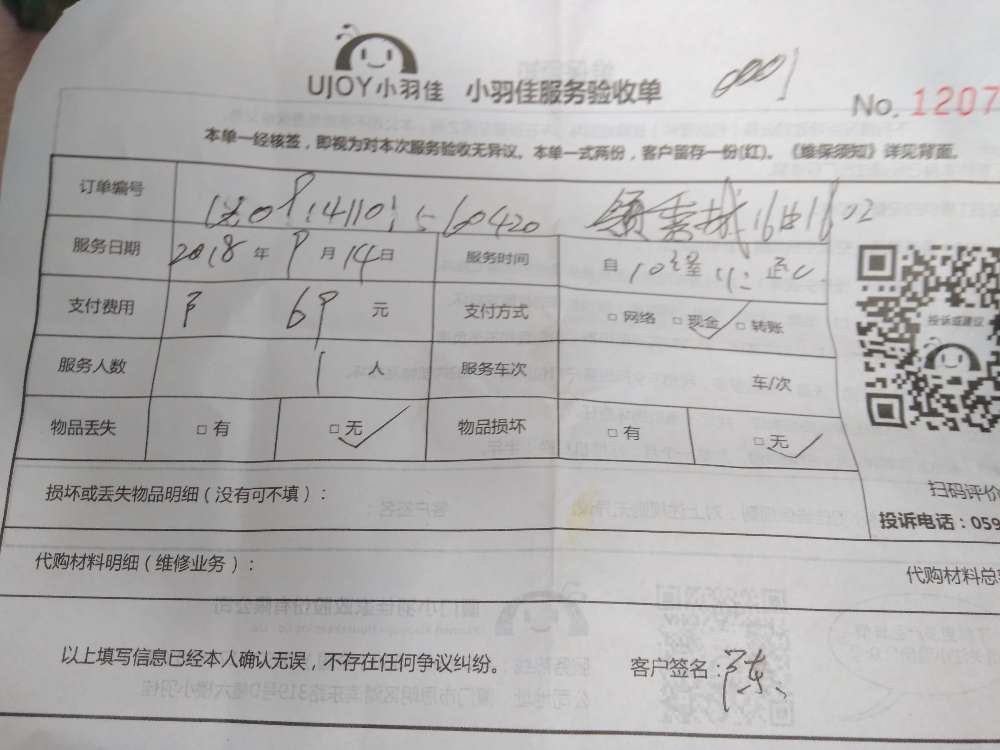 UJOY小羽佳 小羽佳服务验收单 0001
No. 1207
本单一经核签，即视为对本次服务验收无异议。本单一式两份，客户留存一份(红)。《维保须知》详见背面。
订单编号 160420 1602
服务日期 2018 年 9 月 14 日 服务时间 自 10 至
支付费用 69 元 支付方式 □ 网络 □ 现金 □ 转账
投诉或建议
服务人数 1 人 服务车次 车/次
物品丢失 □ 有 □ 无 物品损坏 □ 有 □ 无
损坏或丢失物品明细（没有可不填）： 扫码评价
投诉电话：059
代购材料明细（维修业务）： 代购材料总
以上填写信息已经本人确认无误，不存在任何争议纠纷。 客户签名：陈